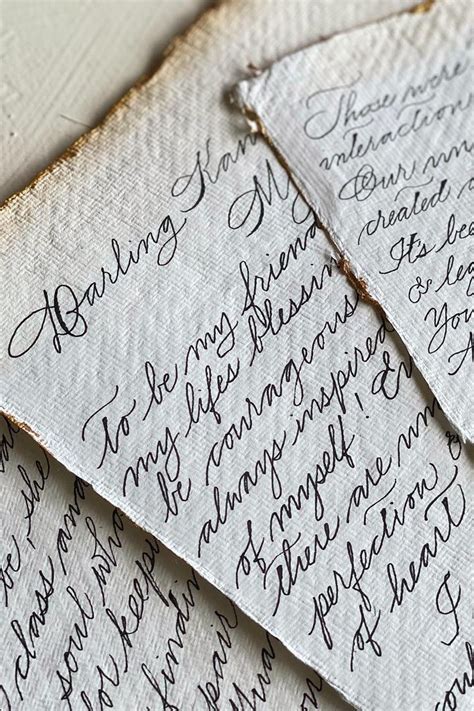 Darling Kam
My
To be my friend
my lifes blessin
be courageous
always inspired
of myself! En
there are unn
perfection &
of heart
I
Those were
interaction
Our un
created
Its bee
& lea
You
A
be, she
class and
soul who
for keepi
finding
pair